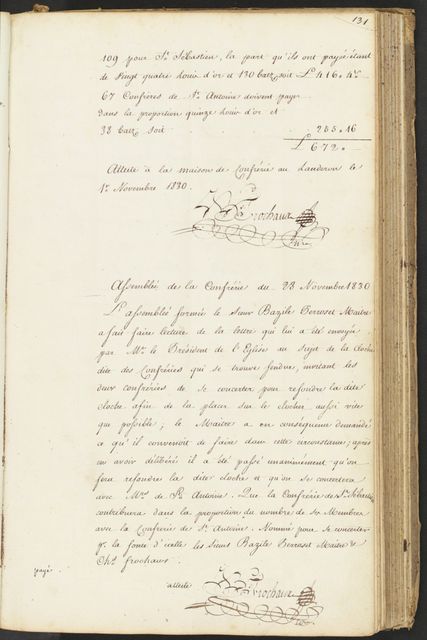 131
109 pour St Sébastien, la part qu'ils ont payée étant
de Vingt quatre Louis d'or et 130 batz soit L 416. 4
67 Confrères de St Antoine doivent payer
dans la proportion quinze Louis d'or et
33 batz soit 255.16
L 672.
Atteste à la maison de Confrérie au Landeron le
1r Novembre 1830.
Frochaux
Assemblée de la Confrérie du 28 Novembre 1830
L'assemblée formée le Sieur Bazile Berroset Maitre
a fait faire lecture de la lettre qui lui a été envoyée
par Mr. le Président de l'Eglise au sujet de la cloche
dite des Confréries qui se trouve fendue, invitant les
deux confréries de se concerter pour refondre la dite
cloche afin de la placer sur le clocher aussi vite
que possible; le Maitre a en conséquence demandé
ce qu'il convenoit de faire dans cette circonstance; après
en avoir délibéré il a été passé unanimément qu'on
fera refondre la dite cloche et qu'on se concertera
avec Mrs de St Antoine. Que la Confrérie de St Sébastien
contribuera dans la proportion du nombre de ses Membres
avec la Confrérie de St Antoine. Nommé pour se concerter
pr la fonte d'icelle les Sieurs Bazile Berroset Maitre &
Chs Frochaux.
payé
atteste
Frochaux